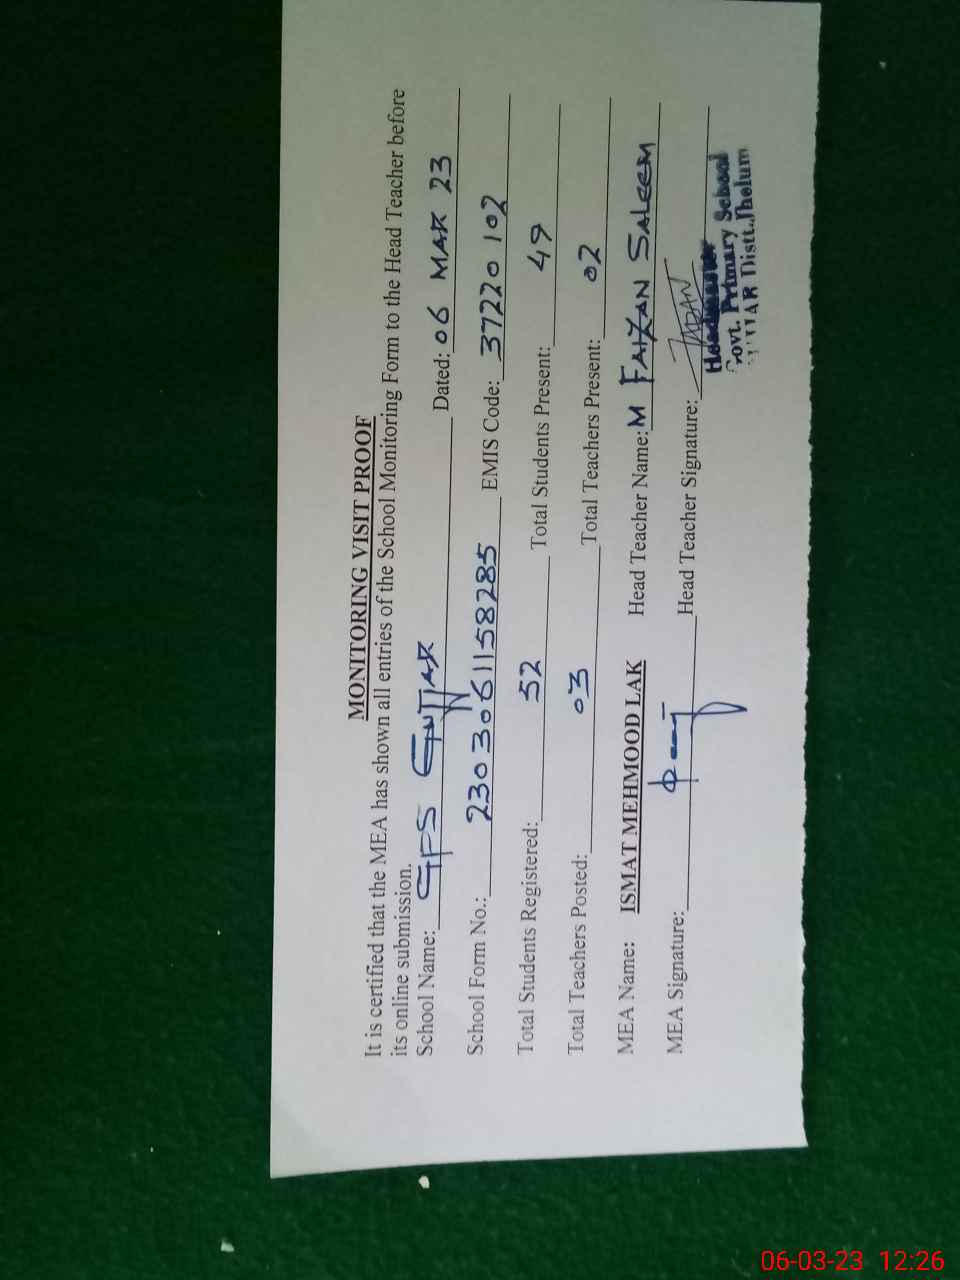 MONITORING VISIT PROOF
It is certified that the MEA has shown all entries of the School Monitoring Form to the Head Teacher before
its online submission.
School Name: GPS GUTTAR Dated: 06 MAR 23
School Form No.: 2303061158285 EMIS Code: 37220102
Total Students Registered: 52 Total Students Present: 49
Total Teachers Posted: 03 Total Teachers Present: 02
MEA Name: ISMAT MEHMOOD LAK Head Teacher Name: M FAIZAN SALEEM
MEA Signature: Head Teacher Signature:
Headmaster
Govt. Primary School
GUTTAR Distt. Jhelum
06-03-23 12:26